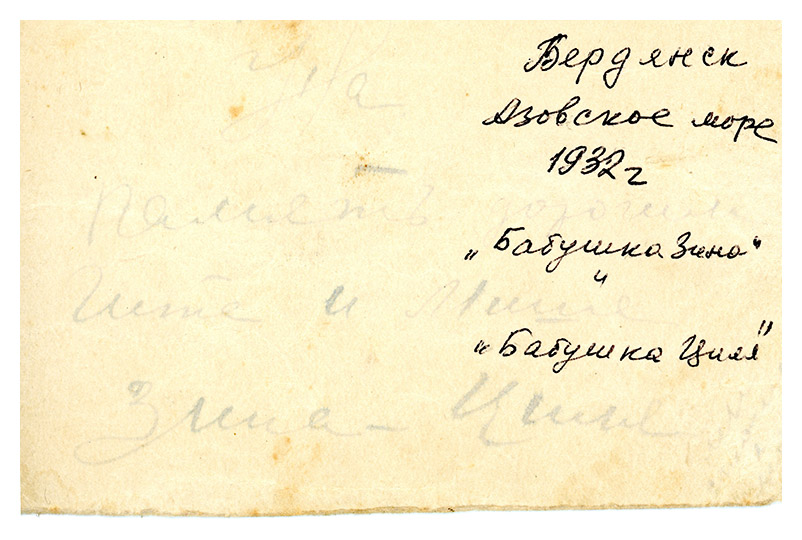 Бердянск
Азовское море
1932 г
„Бабушка Зина"
и
„Бабушка Циля"
На
память дорогим
и Мише
Зина – Циля